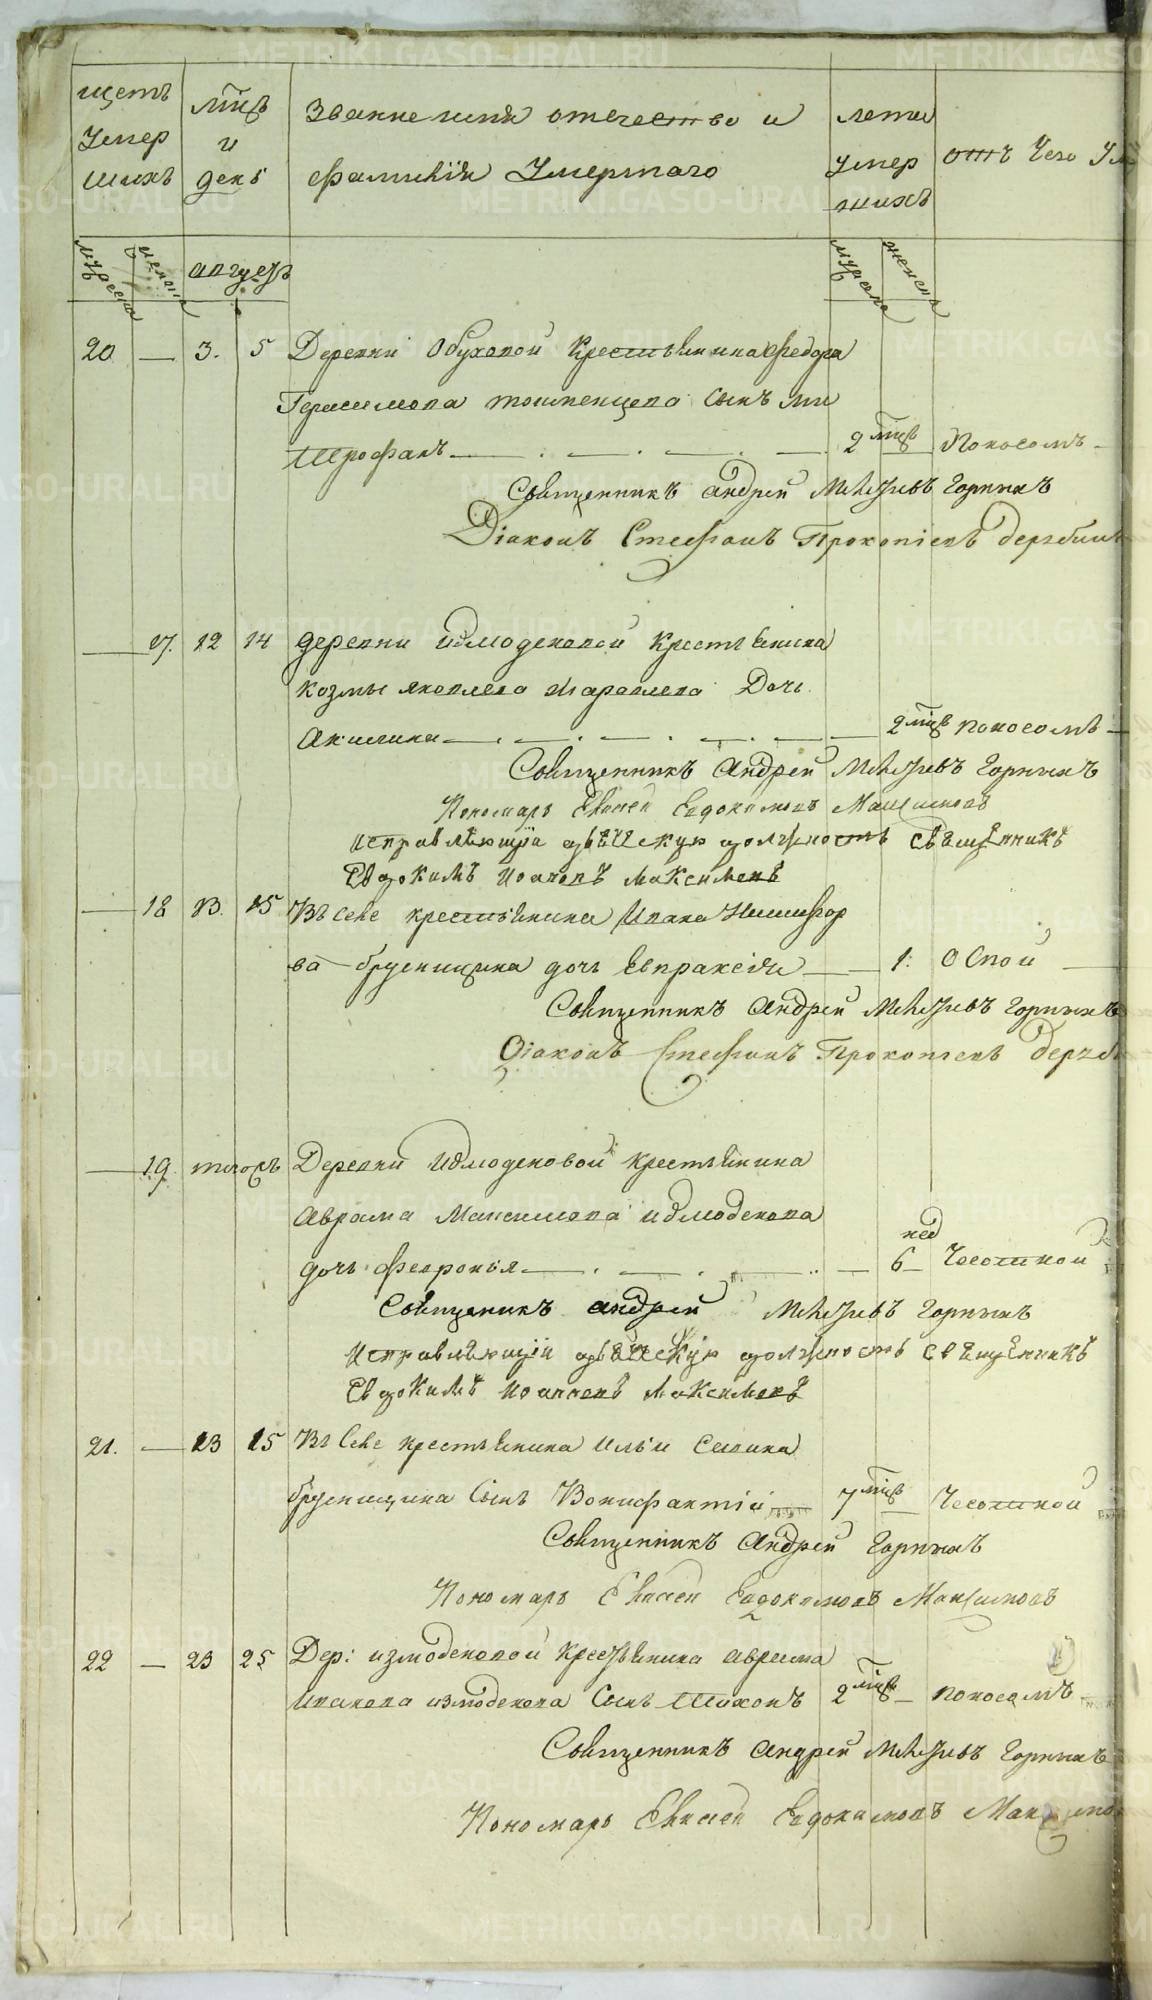 щетъ Умер шихъ
мцъ и день
Звание имя отечество и
фамилїя Умершаго
лета умер шихъ
отъ Чего
мужеска женска
августъ
мужеска женска
20 — 3. 5 Деревни Обуховой Крестьянина Федора
Герасимова сынъ ми
трофанъ — . — . — . — 2 мцъ Поносомъ
Священникъ андрей Горныхъ
Дїаконъ Стефанъ Прокопїевъ
— 17. 12 14 деревни Измоденовой Крестьянина
козмы яковлева Дочь
Акилина — . — . — . — 2 мцъ поносомъ —
Священникъ Андрей Горныхъ
Пономарь Евсей Евдокимовъ Максимовъ
исправляющїи дьяческую должность священникъ
Евдокимъ Иоанновъ Максимовъ
— 18 13. 15 Въ селе крестьянина Ивана Никифор
ва брусницина дочь Евпраксїя — 1. Оспой —
Священникъ Андрей Горныхъ
Дїаконъ Стефанъ Прокопїевъ
— 19. тогожъ Деревни Измоденовой крестьянина
Аврама Максимова измоденова
дочь Февронья — . — . — .. — 6 нед Чесоткой
Священикъ андрей Горныхъ
Исправляющїй дьяческую должность священникъ
Евдокимъ Иоанновъ Максимовъ
21. — 13 15 Въ селе крестьянина Ильи Силина
брусницина Сынъ Вонифантїй — 7 мцъ Чесоткой
Священникъ Андрей Горныхъ
Пономарь Евсей Евдокимовъ Максимовъ
22 — 23 25 Дер: измоденовой Крестьянина аврама
Иванова измоденова Сынъ Тихонъ 2 мцъ — поносомъ
Священникъ Андрей Горныхъ
Пономарь Евсей Евдокимовъ
METRIKI.GASO-URAL.RU